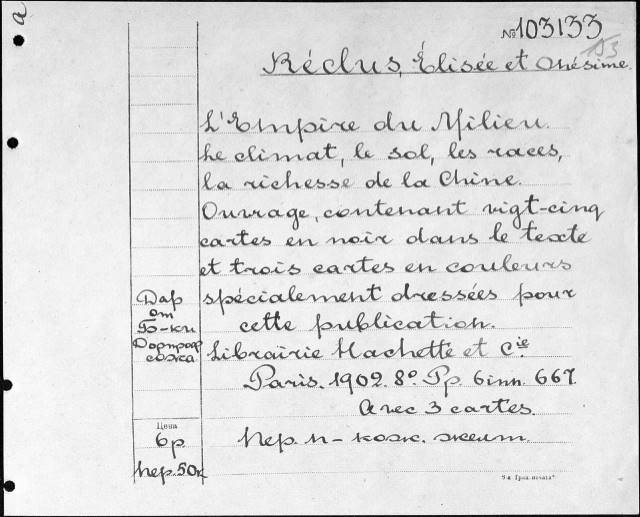 a
№ 103133
153
Réclus, Élisée et Onésime.
L'Empire du Milieu.
Le climat, le sol, les races,
la richesse de la Chine.
Ouvrage, contenant vigt-cinq
cartes en noir dans le texte
et trois cartes en couleurs
spécialement dressées pour
cette publication.
Librairie Hachette et Cie.
Paris. 1902. 8º. Pp. 6 inn. 667.
Avec 3 cartes.
Пер. п-кож. желт.
Дар
от
Б-ки
Цена
6 р.
пер. 50к